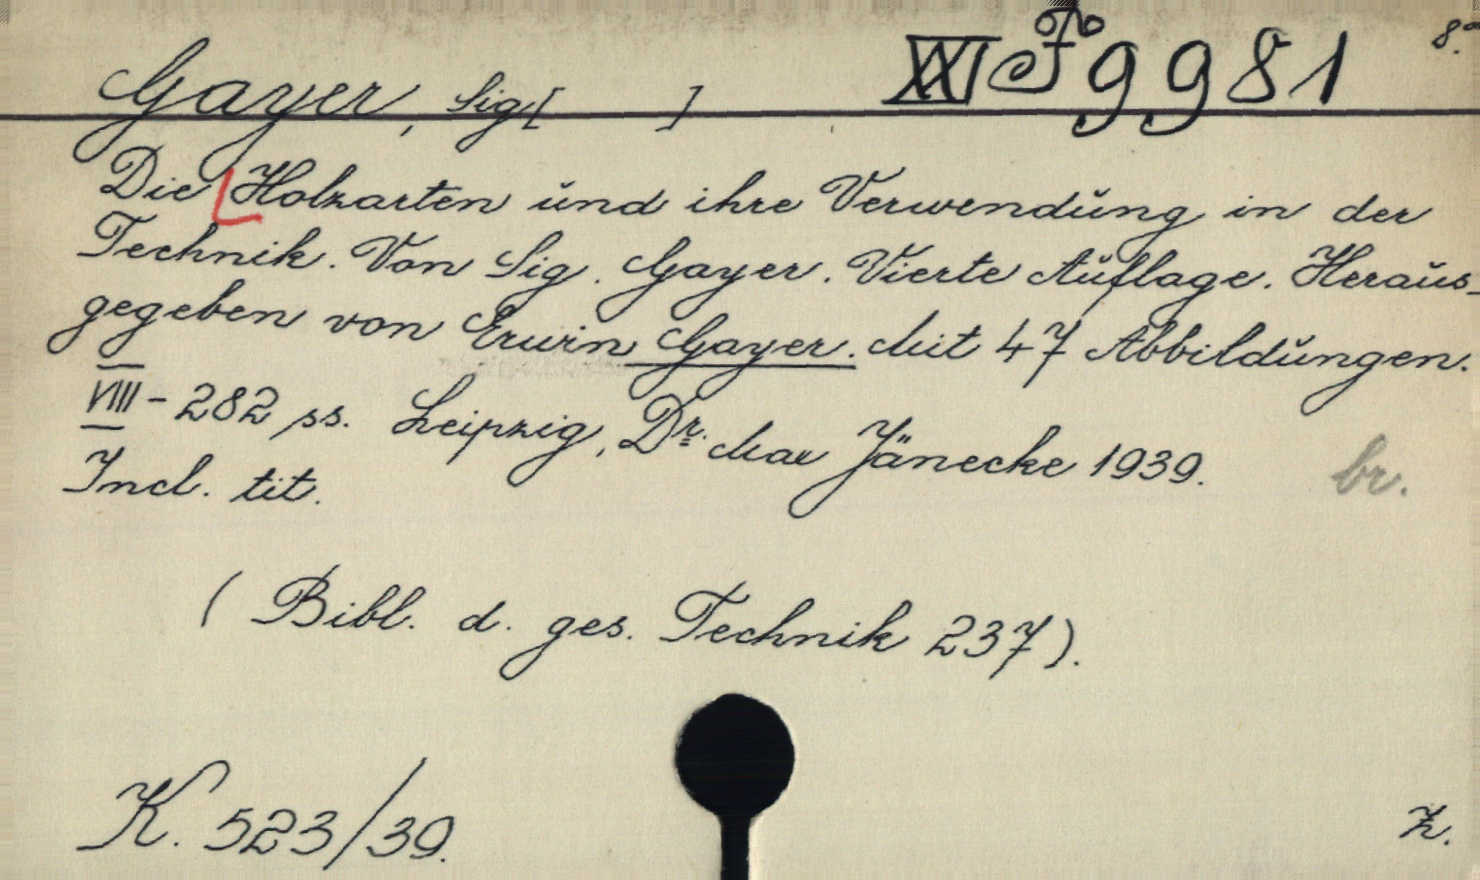 Gayer, Sig[ ] XXI J 9981 8.°
Die Holzarten und ihre Verwendung in der
Technik. Von Sig. Gayer. Vierte Auflage. Heraus-
gegeben von Erwin Gayer. Mit 47 Abbildungen.
VIII - 282 ss. Leipzig, Dr. Max Jänecke 1939. br.
Incl. tit.
( Bibl. d. ges. Technik 237).
K. 523/39.